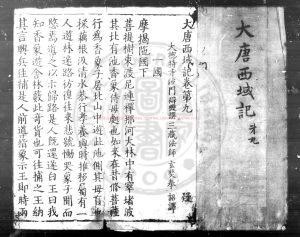 大唐西域記卷第九
一國
大總持寺沙門辯機撰 三藏法師玄奘奉 詔譯
摩揭陁國下
菩提樹東渡尼連禪那河大林中有窣堵波
其北有池香象侍母處也如來在昔修菩薩
行爲香象子居北山中遊此池側其母盲也
採藕根汲清水恭行孝養與時推移屬有一
人遊林迷路彷徨往來悲號慟哭象子聞而
愍焉導之以示歸路是人旣還遂白王曰我
知香象遊舍林藪此奇貨也可往捕之王納
其言興兵往捕是人前導指象示王即時兩
大唐西域記